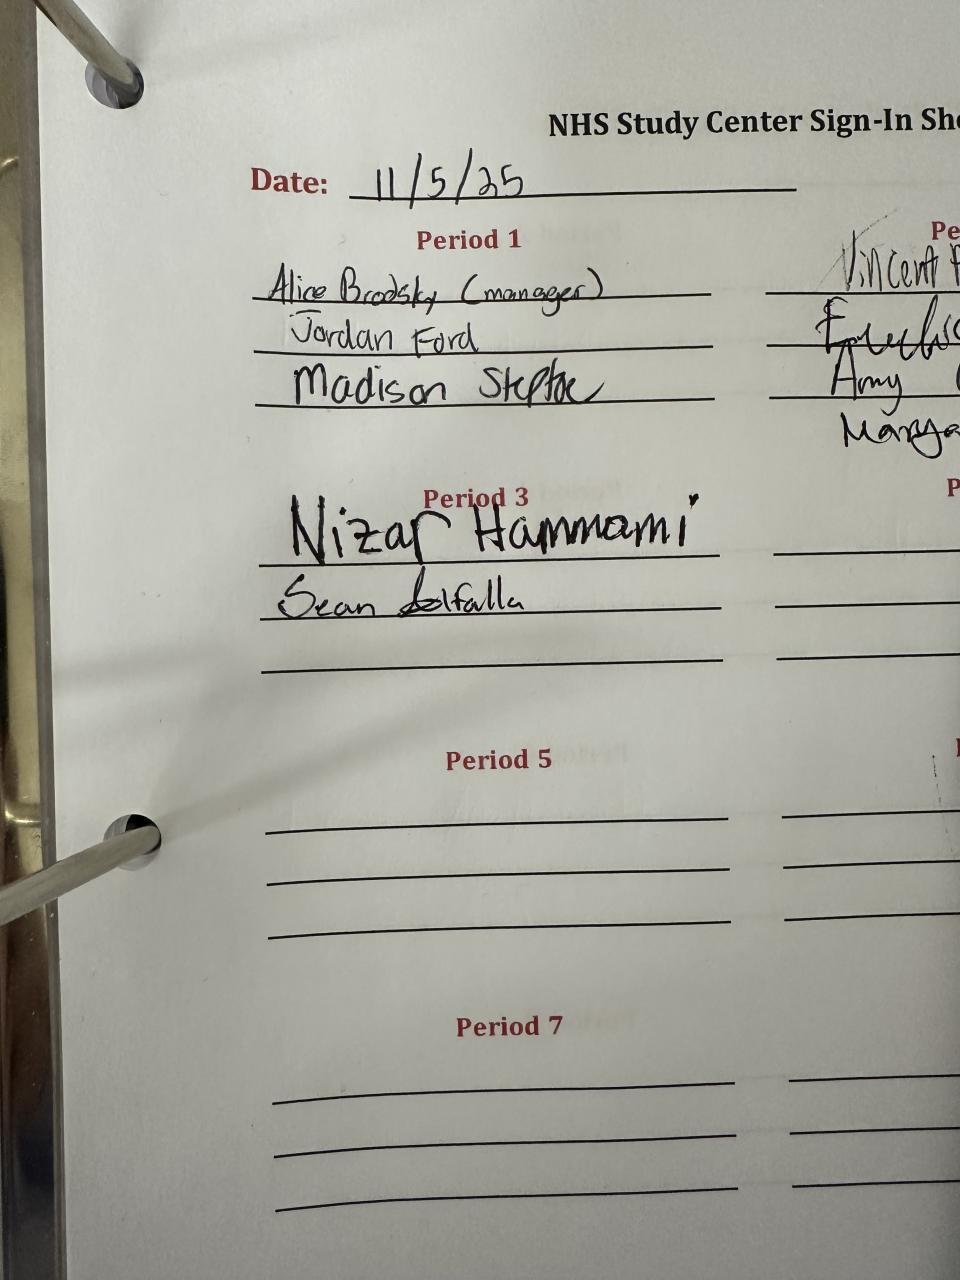 NHS Study Center Sign-In
Date: 11/5/25
Period 1
Alice Brodsky (manager)
Jordan Ford
Madison Steptoe
Vincent
Amy
Period 3
Nizar Hammami
Sean
Period 5
Period 7